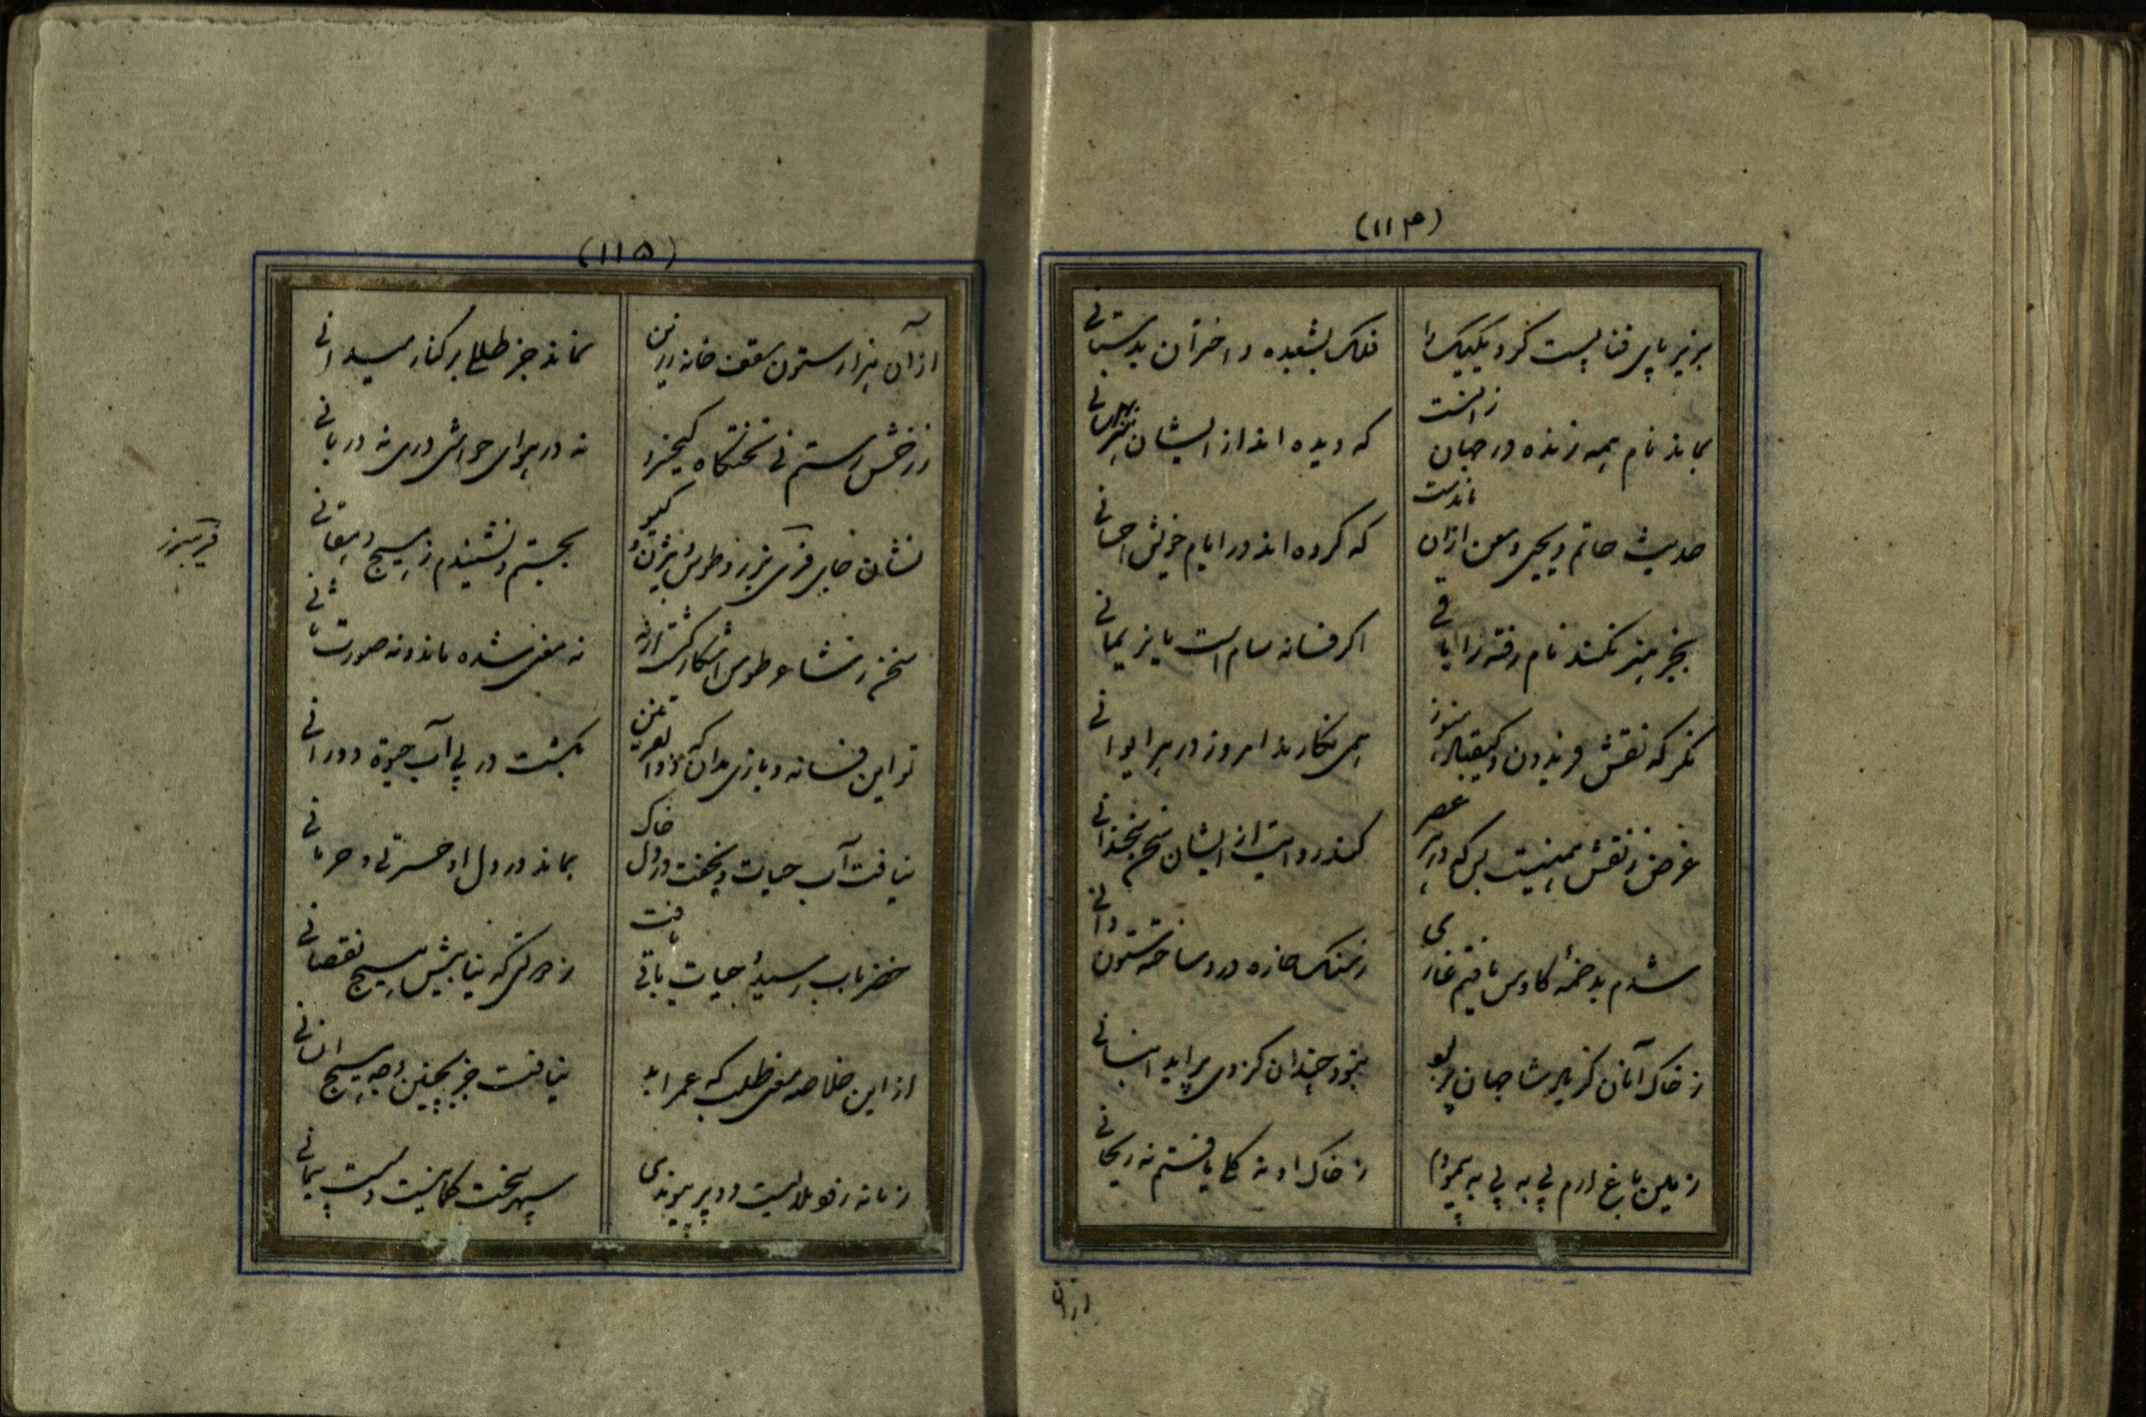 (۱۱۴)
بزیر پای فنا پست کرد یکیک را
فلک بشعبده و اختران بدستانی
بماند نام همه زنده در جهان ز انست
که دیده اند از ایشان
حدیث حاتم و یحیی و معن ازان ماندست
که کرده اند در ایام خویش احسانی
بجز هنر نکند نام رفته را باقی
اگر فسانه سام است یا نریمانی
نگر که نقش فریدون و کیقباد هنوز
همی نگارند امروز در هر ایوانی
غرض ز نقش همینست بس که در هر عصر
کند روایت از ایشان سخن سخندانی
شدم بدخمه کاوس یافتم غاری
ز سنگ خاره درو ساخته ستون دانی
ز خاک آنان کز یاد شا جهان پر بو
نبود چندان کز وی پر آید انبانی
زمین باغ ارم پی به پی به پیمودم
ز خاک او نه گلی یافتم نه ریحانی
ازان
(۱۱۵)
از آن هزار ستون سقف خانه زرین
نماند جز طللی بر کنار میدانی
ز رخش رستم نی تختگاه کیخسرو
نه در هوای حواشی دری نه دربانی
نشان جای فریبرز و طوس و بیژن و گیو
بجستم و نشنیدم ز هیچ دهقانی
فریبرز
سخن ز نشاء و طوس آشکار گشت ارنه
نه معنی شده ماند و نه صورت ثانی
تو این فسانه و بازی مدان که ذوالقرنین
بگشت در پی آب حیوة دورانی
نیافت آب حیات و بخفت در دل خاک
بماند در دل او حسرتی و حرمانی
خضر بآب رسید و حیات باقی یافت
ز مرگی که نیابیش هیچ نقصانی
از این خلاصه معنی طلب که عمر ابد
نیافت جز بچنین وجه هیچ انسانی
زمانه رفو بلاایست دو پر پیوندی
سپهر سخت کمانیست سست پیمانی